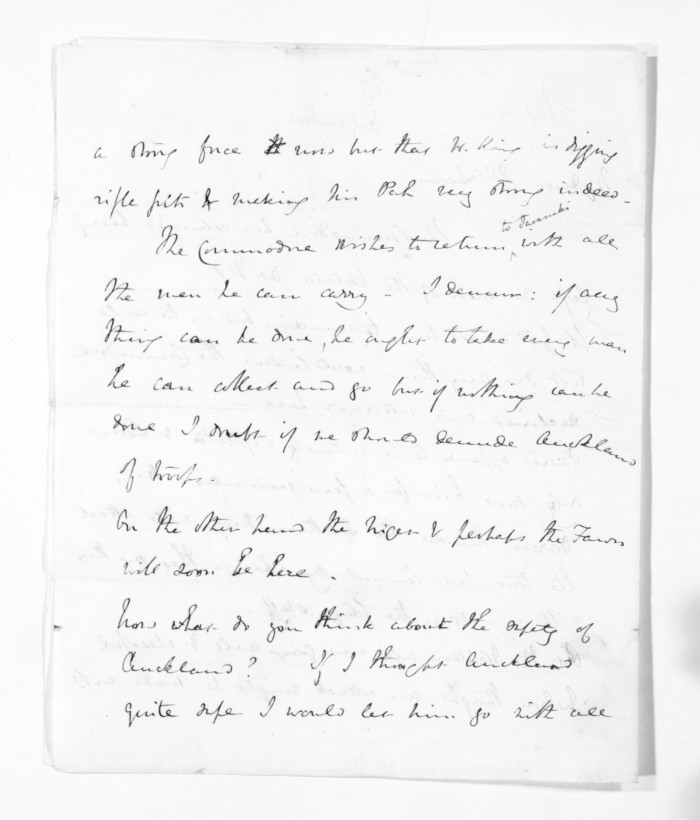 a strong force now but that W. King is digging
rifle pits & making his Pah very strong indeed -
to Taranaki
The Commodore wishes to return with all
the men he can carry - I demur: if any
thing can be done, he ought to take every man
he can collect and go but if nothing can be
done I doubt if we should denude Auckland
of troops -
On the other hand the Niger & perhaps the Fawn
will soon be here -
Now what do you think about the safety of
Auckland? If I thought Auckland
quite safe I would let him go with all